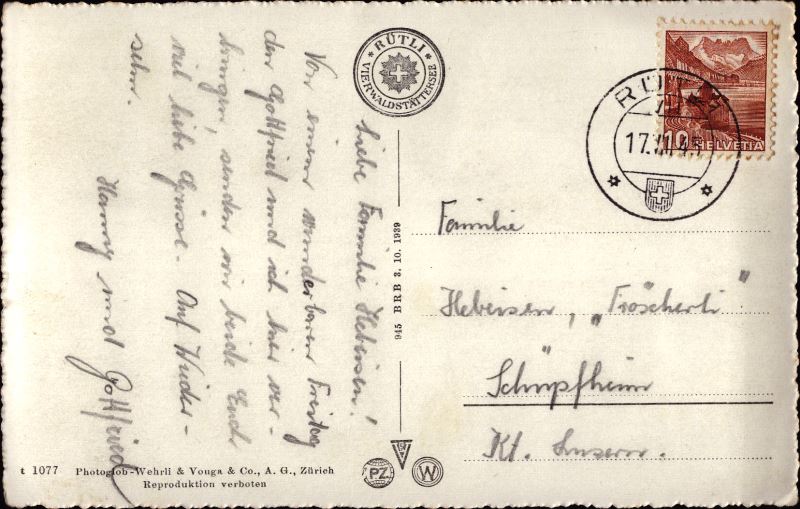 Liebe Familie Hebeisen!
Von einer wunderbaren Freitag
den Gottfried und ich hier ver-
bringen, senden wir beide Euch
viel liebe Grüsse. Auf Wieder-
sehn.
Hanny und Gottfried
* RÜTLI *
VIERWALDSTÄTTERSEE
945 BRB 3. 10. 1939
RÜTLI
10 HELVETIA
Familie
Hebeisen, "Fröscherli"
Schüpfheim
Kt. Luzern.
t 1077 Photoglob-Wehrli & Vouga & Co., A. G., Zürich
Reproduktion verboten
PZ
W